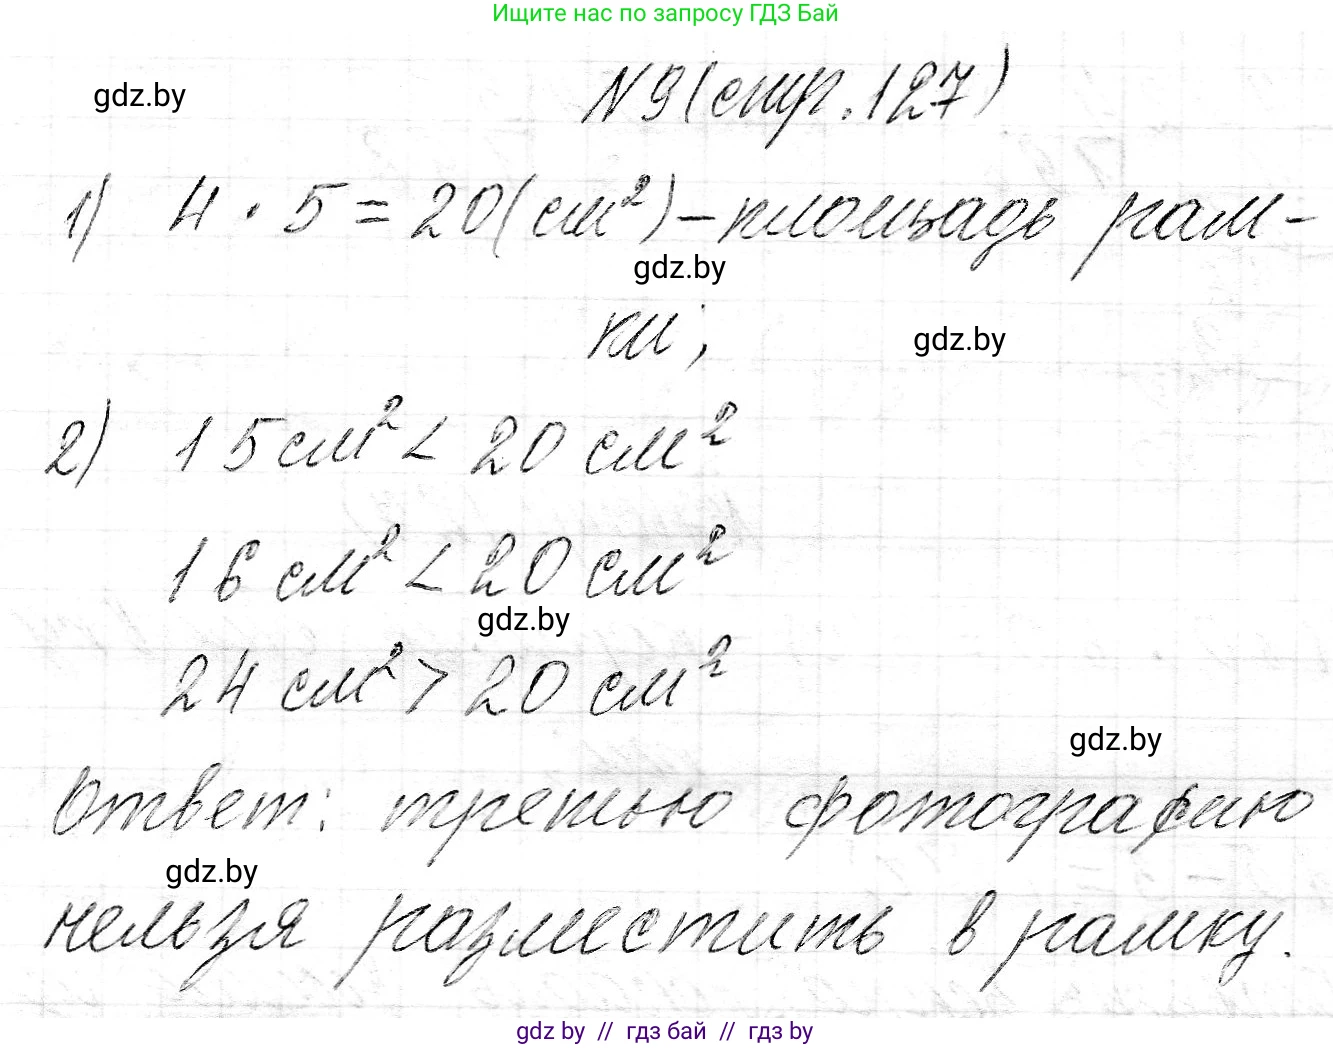 Ищите нас по запросу ГДЗ Бай
N 9 (стр. 127)
gdz.by
1) 4 · 5 = 20 (см²) – площадь рам-
gdz.by
ки;
gdz.by
2) 15 см² < 20 см²
16 см² < 20 см²
gdz.by
24 см² > 20 см²
gdz.by
Ответ: третью фотографию
gdz.by
нельзя разместить в рамку.
gdz by // гдз бай // гдз by